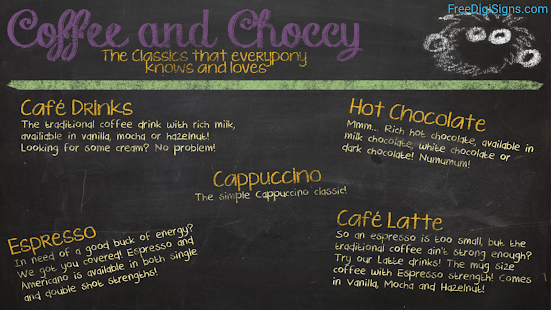 FreeDigiSigns.com
Coffee and Choccy
The Classics that everypony
knows and loves
Café Drinks
The traditional coffee drink with rich milk,
available in vanilla, mocha or hazelnut!
Looking for some cream? No problem!
Hot Chocolate
Mmm... Rich hot chocolate, available in
milk chocolate, white chocolate or
dark chocolate! Numumum!
Cappuccino
The simple Cappuccino classic!
Espresso
In need of a good buck of energy?
We got you covered! Espresso and
Americano is available in both single
and double shot strengths!
Café Latte
So an espresso is too small, but the
traditional coffee ain't strong enough?
Try our Latte drinks! The mug size
coffee with Espresso strength! Comes
in Vanilla, Mocha and Hazelnut!